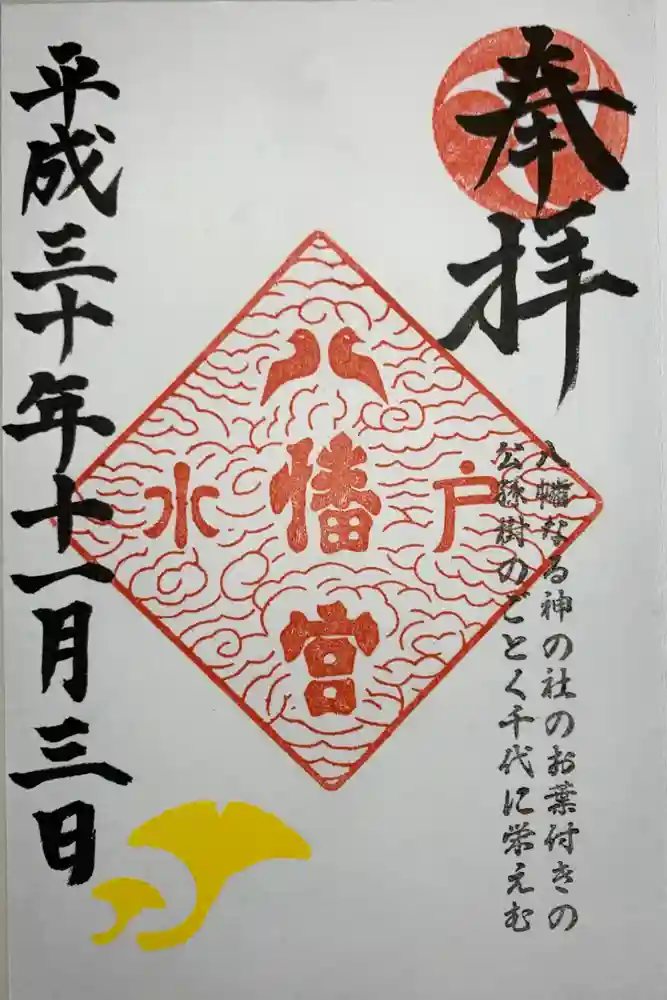 奉拝
八幡なる神の社のお葉付きの
公孫樹のごとく千代に栄えむ
水戸
八幡宮
平成三十年十一月三日